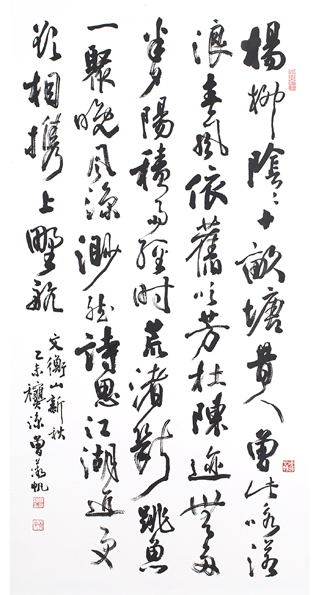 楊柳陰〻十畝塘昔人曾此咏滄
浪春風依舊吹芳杜陳迹無多
半夕陽積雨經時荒渚斷跳魚
一聚晚風涼渺然詩思江湖近更
欲相攜上野航
文衡山新秋
乙未 曾 帆